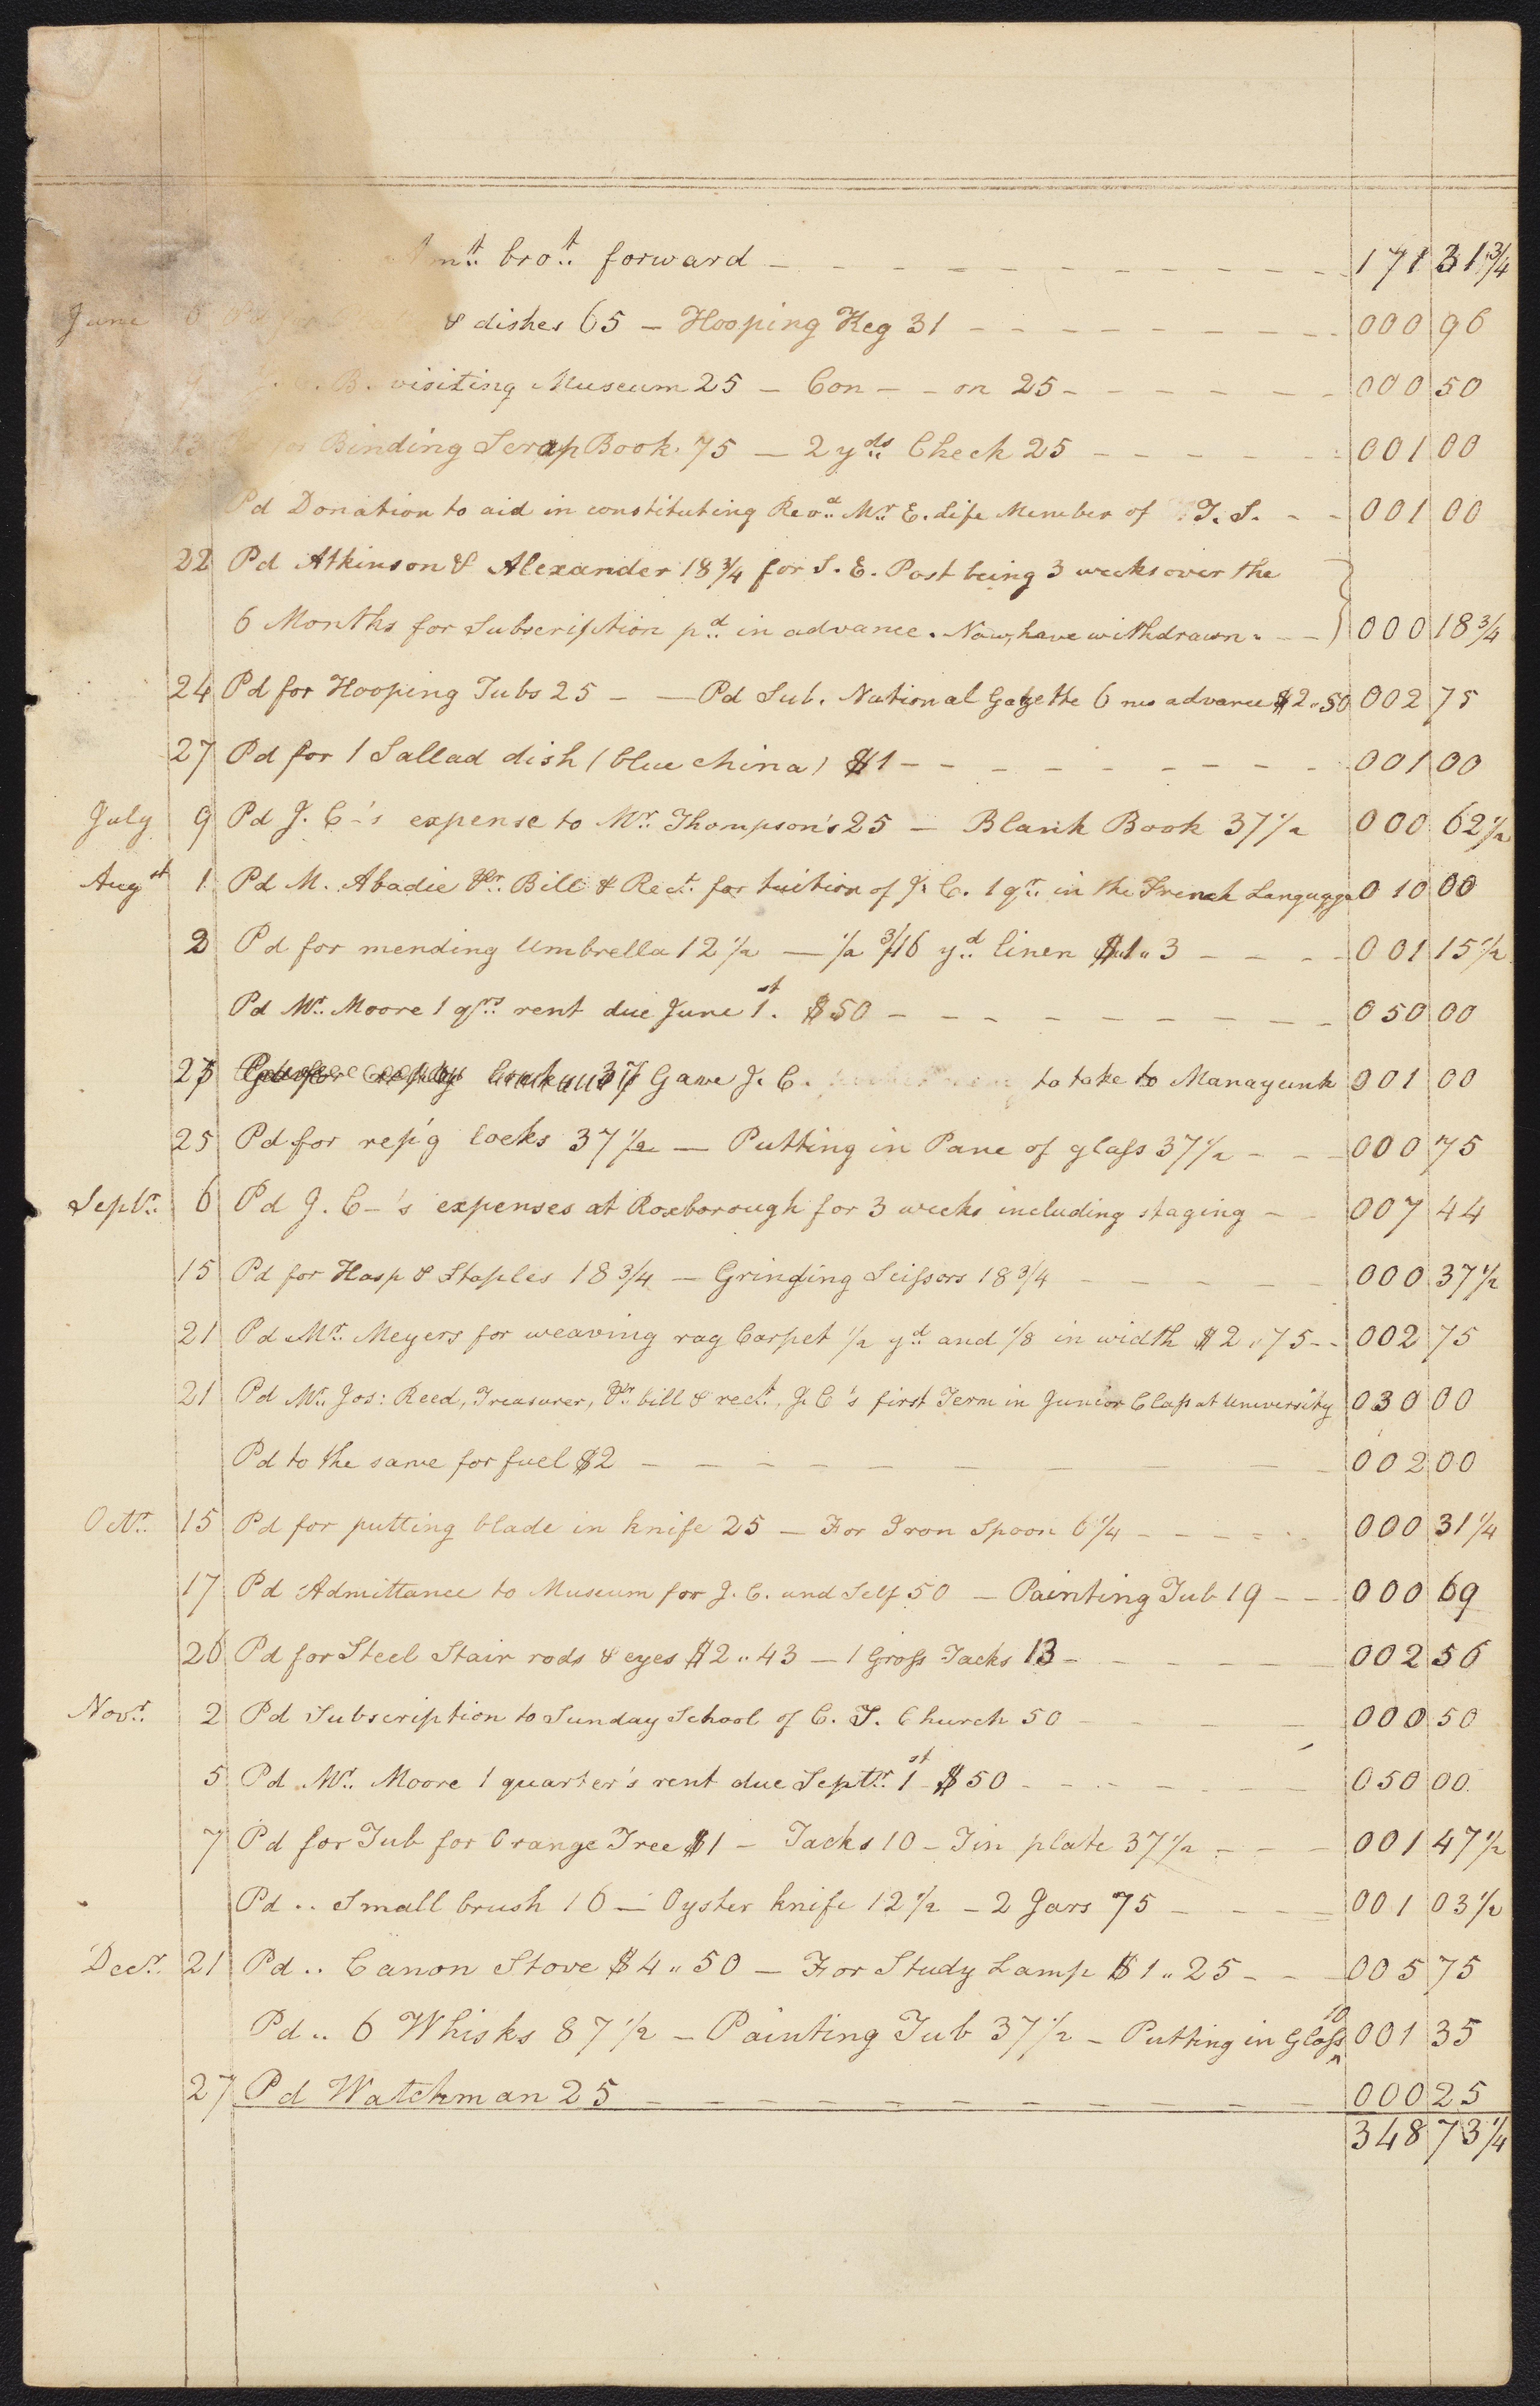 Amt. brot. forward - - - - - - - - - - - 171 31 3/4
June 6 & dishes 65 - Hooping Keg 31 - - - - - - - - 000 96
B. visiting Museum 25 - Con - - on 25 - - - - - - 000 50
13 for Binding Scrap Book. 75 - 2 yds. Check 25 - - - - - 001 00
Pd Donation to aid in constituting Revd. Mr. E. Life Member of T. S. - - 001 00
22 Pd Atkinson & Alexander 18 3/4 for S. E. Post being 3 weeks over the
6 Months for Subscription pd. in advance. Now, have withdrawn. - - 000 18 3/4
24 Pd for Hooping Tubs 25 - - Pd Sub. National Gazette 6 mo advance $2..50 002 75
27 Pd for 1 Sallad dish (blue china) $1 - - - - - - - - 001 00
July 9 Pd J. C-'s expense to Mr. Thompson's 25 - Blank Book 37 1/2 000 62 1/2
Augst 1 Pd M. Abadie Pr. Bill & Rect. for tuition of J. C. 1 qr. in the French Language 0 10 00
2 Pd for mending Umbrella 12 1/2 - 1/2 3/16 yd. linen $1..3 - - - - 001 15 1/2
Pd Mr. Moore 1 qrs. rent due June 1st. $50 - - - - - - - - 050 00
23 Gave J. C. to take to Manayunk 001 00
25 Pd for rep'g locks 37 1/2 - Putting in Pane of glass 37 1/2 - - - 000 75
Septr. 6 Pd J. C-'s expenses at Roxborough for 3 weeks including staging - - 007 44
15 Pd for Hasp & Staples 18 3/4 - Grinding Scissors 18 3/4 - - - - - 000 37 1/2
21 Pd Mr. Meyers for weaving rag Carpet 1/2 yd. and 1/8 in width $2..75 - - 002 75
21 Pd Mr. Jos: Reed, Treasurer, Pr. bill & rect., J. C's first Term in Junior Class at University 030 00
Pd to the same for fuel $2 - - - - - - - - - 002 00
Octr. 15 Pd for putting blade in knife 25 - For Iron Spoon 6 1/4 - - - - - - 000 31 1/4
17 Pd Admittance to Museum for J. C. and Self 50 - Painting Tub 19 - - - 000 69
26 Pd for Steel Stair rods & eyes $2..43 - 1 Gross Tacks 13 - - - - - - 002 56
Novr. 2 Pd Subscription to Sunday School of C. T. Church 50 - - - - - 000 50
5 Pd Mr. Moore 1 quarter's rent due Septr. 1st $50 - - - - - - - 050 00
7 Pd for Tub for Orange Tree $1 - Tacks 10 - Tin plate 37 1/2 - - - 001 47 1/2
Pd .. Small brush 16 - Oyster knife 12 1/2 - 2 Jars 75 - - - - - 001 03 1/2
Decr. 21 Pd .. Canon Stove $4..50 - For Study Lamp $1..25 - - - 005 75
Pd .. 6 Whisks 87 1/2 - Painting Tub 37 1/2 - Putting in Glass 10 001 35
27 Pd Watchman 25 - - - - - - - - - - 000 25
348 73 1/4